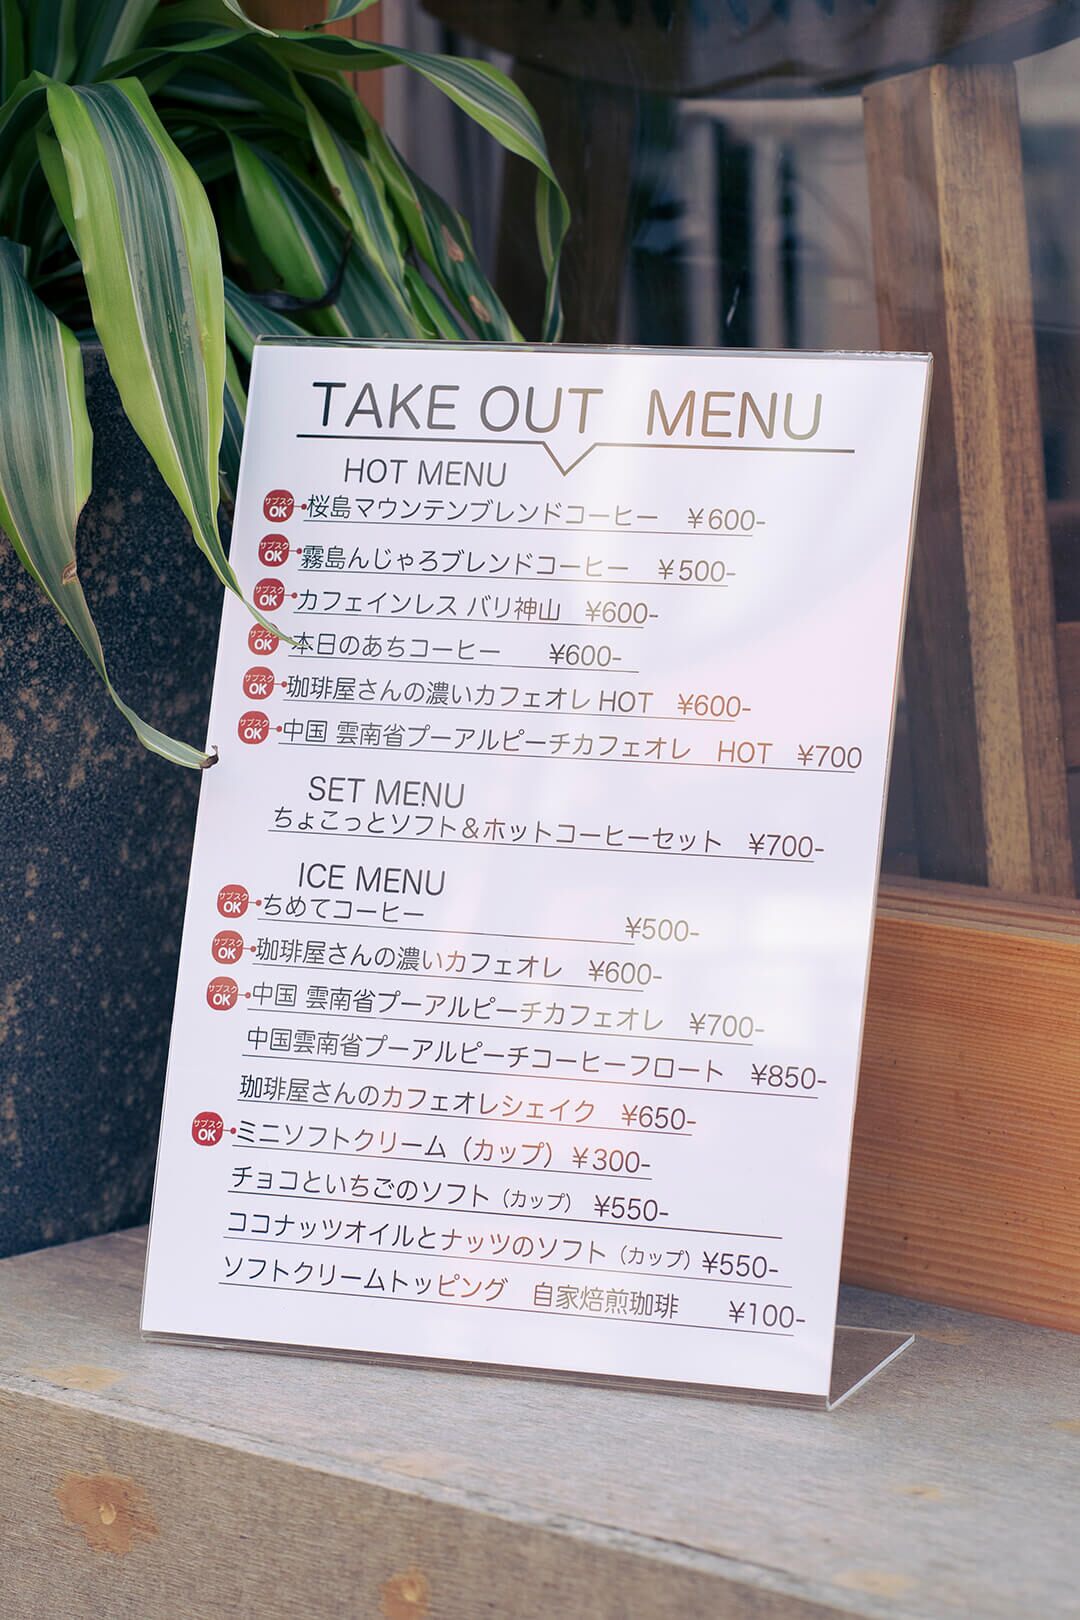 TAKE OUT MENU
HOT MENU
サブスク OK 桜島マウンテンブレンドコーヒー ￥600-
サブスク OK 霧島んじゃろブレンドコーヒー ￥500-
サブスク OK カフェインレス バリ神山 ¥600-
サブスク OK 本日のあちコーヒー ¥600-
サブスク OK 珈琲屋さんの濃いカフェオレ HOT ¥600-
サブスク OK 中国 雲南省プーアルピーチカフェオレ HOT ¥700
SET MENU
ちょこっとソフト＆ホットコーヒーセット ¥700-
ICE MENU
サブスク OK ちめてコーヒー ¥500-
サブスク OK 珈琲屋さんの濃いカフェオレ ¥600-
サブスク OK 中国 雲南省プーアルピーチカフェオレ ¥700-
中国雲南省プーアルピーチコーヒーフロート ¥850-
珈琲屋さんのカフェオレシェイク ¥650-
サブスク OK ミニソフトクリーム（カップ）￥300-
チョコといちごのソフト（カップ） ¥550-
ココナッツオイルとナッツのソフト（カップ）¥550-
ソフトクリームトッピング 自家焙煎珈琲 ¥100-